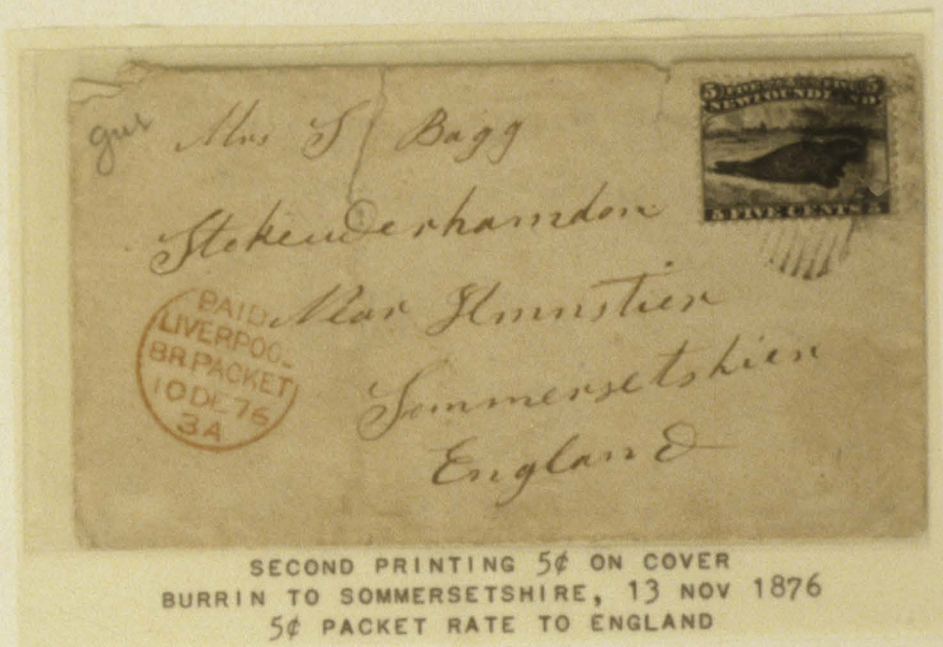 gus
Mrs S Bagg
Stokeuderhamdon
Near Ilmnstier
Sommersetshien
England
5 5
NEWFOUNDLAND
5 FIVE CENTS 5
PAID
LIVERPOOL
BR.PACKET
10 DE 76
3A
SECOND PRINTING 5¢ ON COVER
BURRIN TO SOMMERSETSHIRE, 13 NOV 1876
5¢ PACKET RATE TO ENGLAND